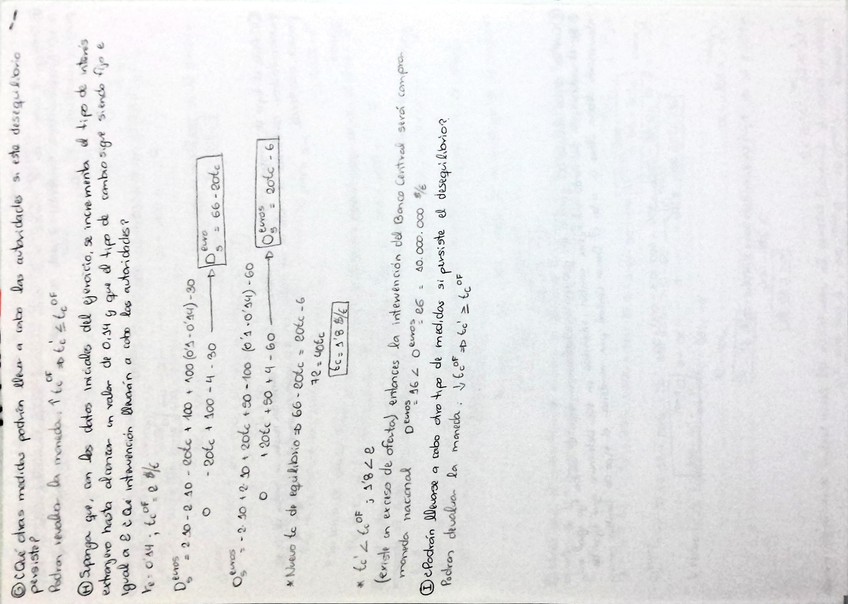 Ⓖ ¿Qué otras medidas podrían llevar a cabo las autoridades si este desequilibrio
persiste?
Podrían revaluar la moneda. ↑tc^OF ⇒ tc' ≤ tc^OF
Ⓗ Suponga que, con los datos iniciales del ejercicio, se incrementa el tipo de interés
extranjero hasta alcanzar un valor de 0,14 y que el tipo de cambio sigue siendo fijo e
igual a 2 ¿Que intervención llevarán a cabo las autoridades?
re = 0'14 ; tc^OF = 2 $/€
D_5^euros = 2·10 - 2·10 - 20tc + 100 + 100 (0'1 - 0'14) - 30
0 - 20tc + 100 - 4 - 30 → D_5^euro = 66 - 20tc
O_5^euros = - 2·10 + 2·10 + 20tc + 50 - 100 (0'1 - 0'14) - 60
0 + 20tc + 50 + 4 - 60 → O_5^euros = 20tc - 6
* Nuevo tc de equilibrio ⇒ 66 - 20tc = 20tc - 6
72 = 40tc
tc = 1'8 $/€
* tc' < tc^OF ; 1'8 < 2
(existe un exceso de oferta) entonces la intervención del Banco Central será compra
moneda nacional D^euros = 26 < O^euros = 10.000.000 $/€
= 16
Ⓘ ¿Podrán llevarse a cabo otro tipo de medidas si persiste el desequilibrio?
Podran devaluar la moneda. ↓tc^OF ⇒ tc' ≥ tc^OF